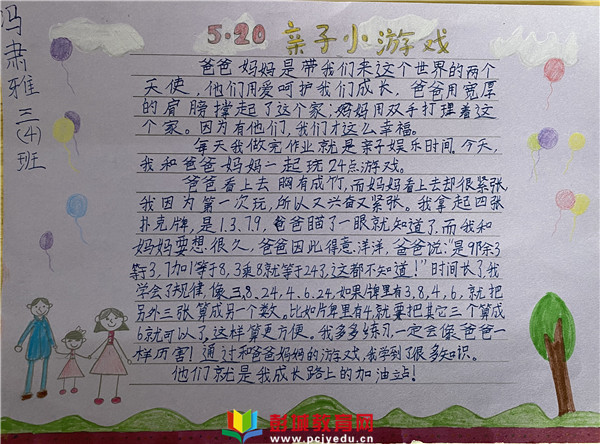 冯肃雅 三(4)班
5·20 亲子小游戏
爸爸妈妈是带我们来这个世界的两个
天使,他们用爱呵护我们成长,爸爸用宽厚
的肩膀撑起了这个家;妈妈用双手打理着这
个家。因为有他们,我们才这么幸福。
每天我做完作业就是亲子娱乐时间。今天,
我和爸爸妈妈一起玩24点游戏。
爸爸看上去胸有成竹,而妈妈看上去却很紧张,
我因为第一次玩,所以又兴奋又紧张。我拿起四张
扑克牌,是1.3.7.9,爸爸瞄了一眼就知道了,而我和
妈妈要想很久,爸爸因此得意洋洋,爸爸说:“是9除3
等于3,7加1等于8,3乘8就等于24了,这都不知道!”时间长了,我
学会了规律,像三,8.24,4.6.24,如果牌里有3,8,4,6,就把
另外三张算成另一个数。比如片牌里有4,就要把其它三个算成
6就可以了,这样算更方便。我多多练习,一定会像爸爸一
样厉害!通过和爸爸妈妈的游戏,我学到了很多知识。
他们就是我成长路上的加油站!
彭城教育网
www.pcjyedu.cn